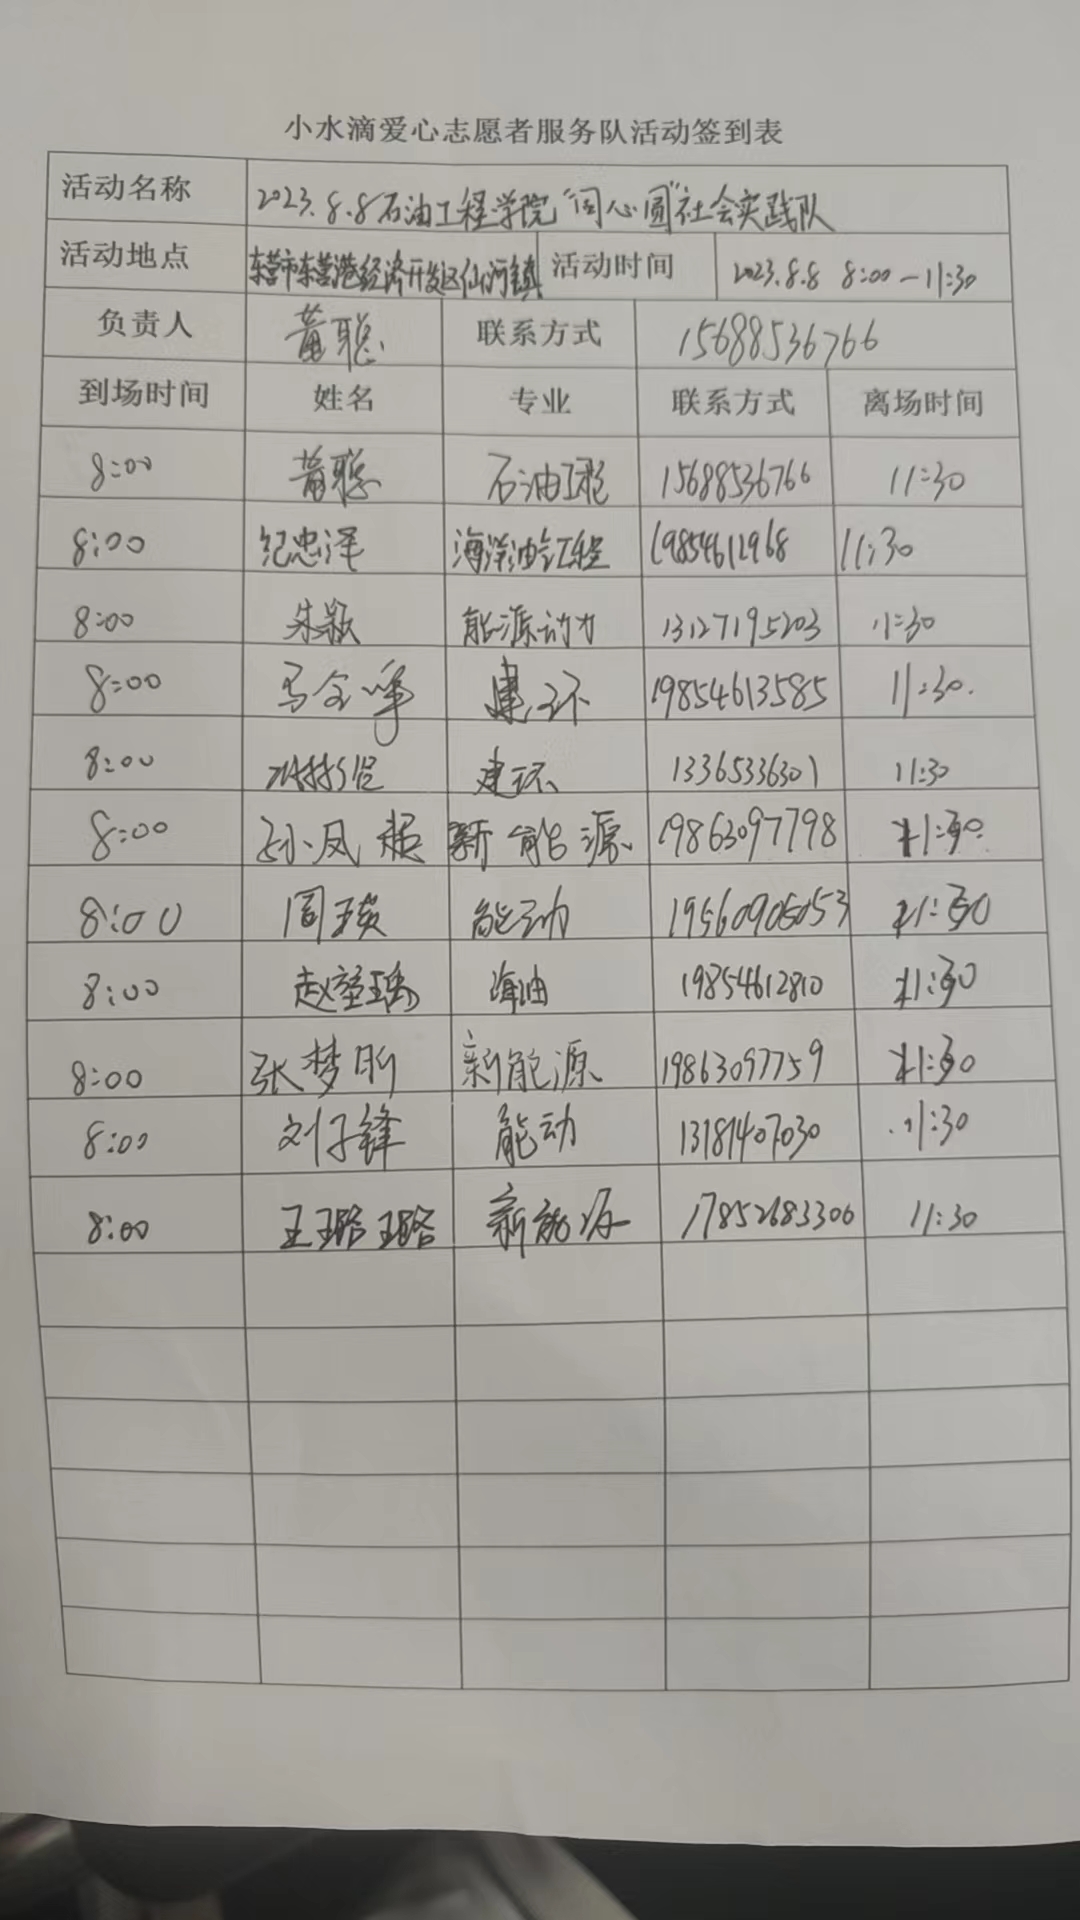 小水滴爱心志愿者服务队活动签到表
活动名称 2023.8.8石油工程学院"同心圆"社会实践队
活动地点 东营市东营港经济开发区仙河镇 活动时间 2023.8.8 8:00-11:30
负责人 黄聪 联系方式 15688536766
到场时间 姓名 专业 联系方式 离场时间
8:00 黄聪 石油工程 15688536766 11:30
8:00 纪忠泽 海洋油气工程 19854612968 11:30
8:00 朱颖 能源动力 13127195203 11:30
8:00 马全峰 建环 19854613585 11:30.
8:00 建环 13365336301 11:30
8:00 孙凤祺 新能源 19863097798 11:30
8:00 周瑛 能动 19560905053 11:30
8:00 赵莹瑀 海油 19854612810 11:30
8:00 张梦昕 新能源 19863097759 11:30
8:00 刘子锋 能动 13181407030 11:30
8:00 王璐璐 新能源 17852683306 11:30